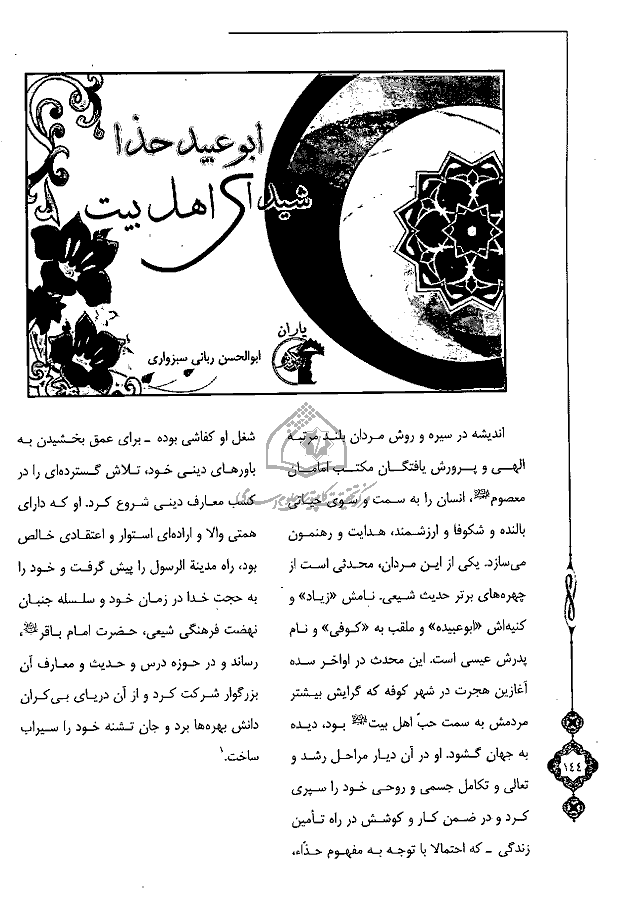 ابوعبید حذا
شیدای اهل بیت
یاران
ابوالحسن ربانی سبزواری
اندیشه در سیره و روش مردان بلند مرتبهٔ
الهی و پرورش یافتگان مکتب امامان
معصوم، انسان را به سمت و سوی حیاتی
بالنده و شکوفا و ارزشمند، هدایت و رهنمون
می‌سازد. یکی از این مردان، محدثی است از
چهره‌های برتر حدیث شیعی. نامش «زیاد» و
کنیه‌اش «ابوعبیده» و ملقب به «کوفی» و نام
پدرش عیسی است. این محدث در اواخر سده
آغازین هجرت در شهر کوفه که گرایش بیشتر
مردمش به سمت حبّ اهل بیت بود، دیده
به جهان گشود. او در آن دیار مراحل رشد و
تعالی و تکامل جسمی و روحی خود را سپری
کرد و در ضمن کار و کوشش در راه تأمین
زندگی ـ که احتمالا با توجه به مفهوم حذّاء،
شغل او کفاشی بوده ـ برای عمق بخشیدن به
باورهای دینی خود، تلاش گسترده‌ای را در
کسب معارف دینی شروع کرد. او که دارای
همتی والا و اراده‌ای استوار و اعتقادی خالص
بود، راه مدینة الرسول را پیش گرفت و خود را
به حجت خدا در زمان خود و سلسله جنبان
نهضت فرهنگی شیعی، حضرت امام باقر،
رساند و در حوزه درس و حدیث و معارف آن
بزرگوار شرکت کرد و از آن دریای بی‌کران
دانش بهره‌ها برد و جان تشنه خود را سیراب
ساخت.۱
١٤٤